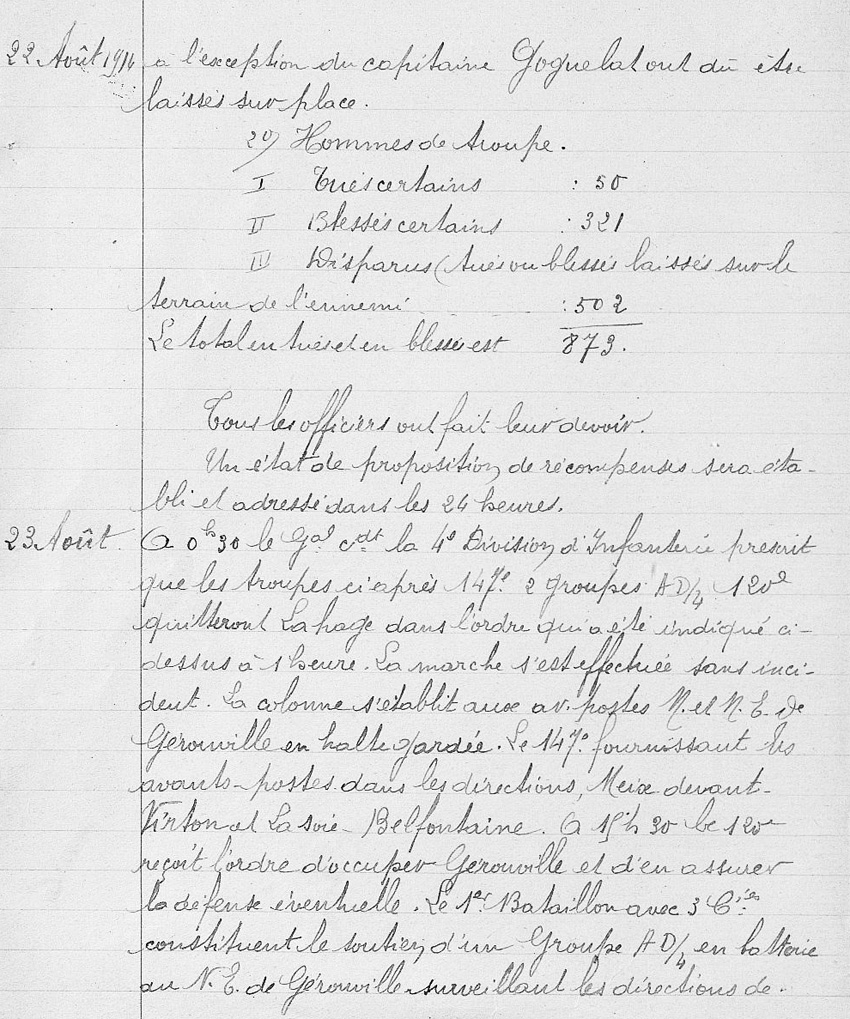 22 Août 1914 à l'exception du capitaine Goguelat ont dû être
laissés sur place.
2º) Hommes de troupe.
I Tués certains : 50
II Blessés certains : 321
III Disparus (tués ou blessés laissés sur le
terrain de l'ennemi : 502
Le total en tués et en blessé est 873.
Tous les officiers ont fait leur devoir.
Un état de proposition de récompenses sera éta-
bli et adressé dans les 24 heures.
23 Août. A 0h30 le Gal cdt la 4e Division d'Infanterie prescrit
que les troupes ci après 147e. 2 groupes AD/4 120e
quitteront Lahage dans l'ordre qui a été indiqué ci-
dessus à 1 heure. La marche s'est effectuée sans inci-
dent. La colonne s'établit aux av. postes N. et N. E. de
Gérouville en halte gardée. Le 147e. fournissant les
avants-postes dans les directions, Meix devant-
Virton et La soie- Belfontaine. A 15h 30 le 120e
reçoit l'ordre d'occuper Gérouville et d'en assurer
la défense éventuelle. Le 1er Bataillon avec 3 Cies
constituent le soutien d'un Groupe AD/4 en batterie
au N. E. de Gérouville surveillant les directions de.